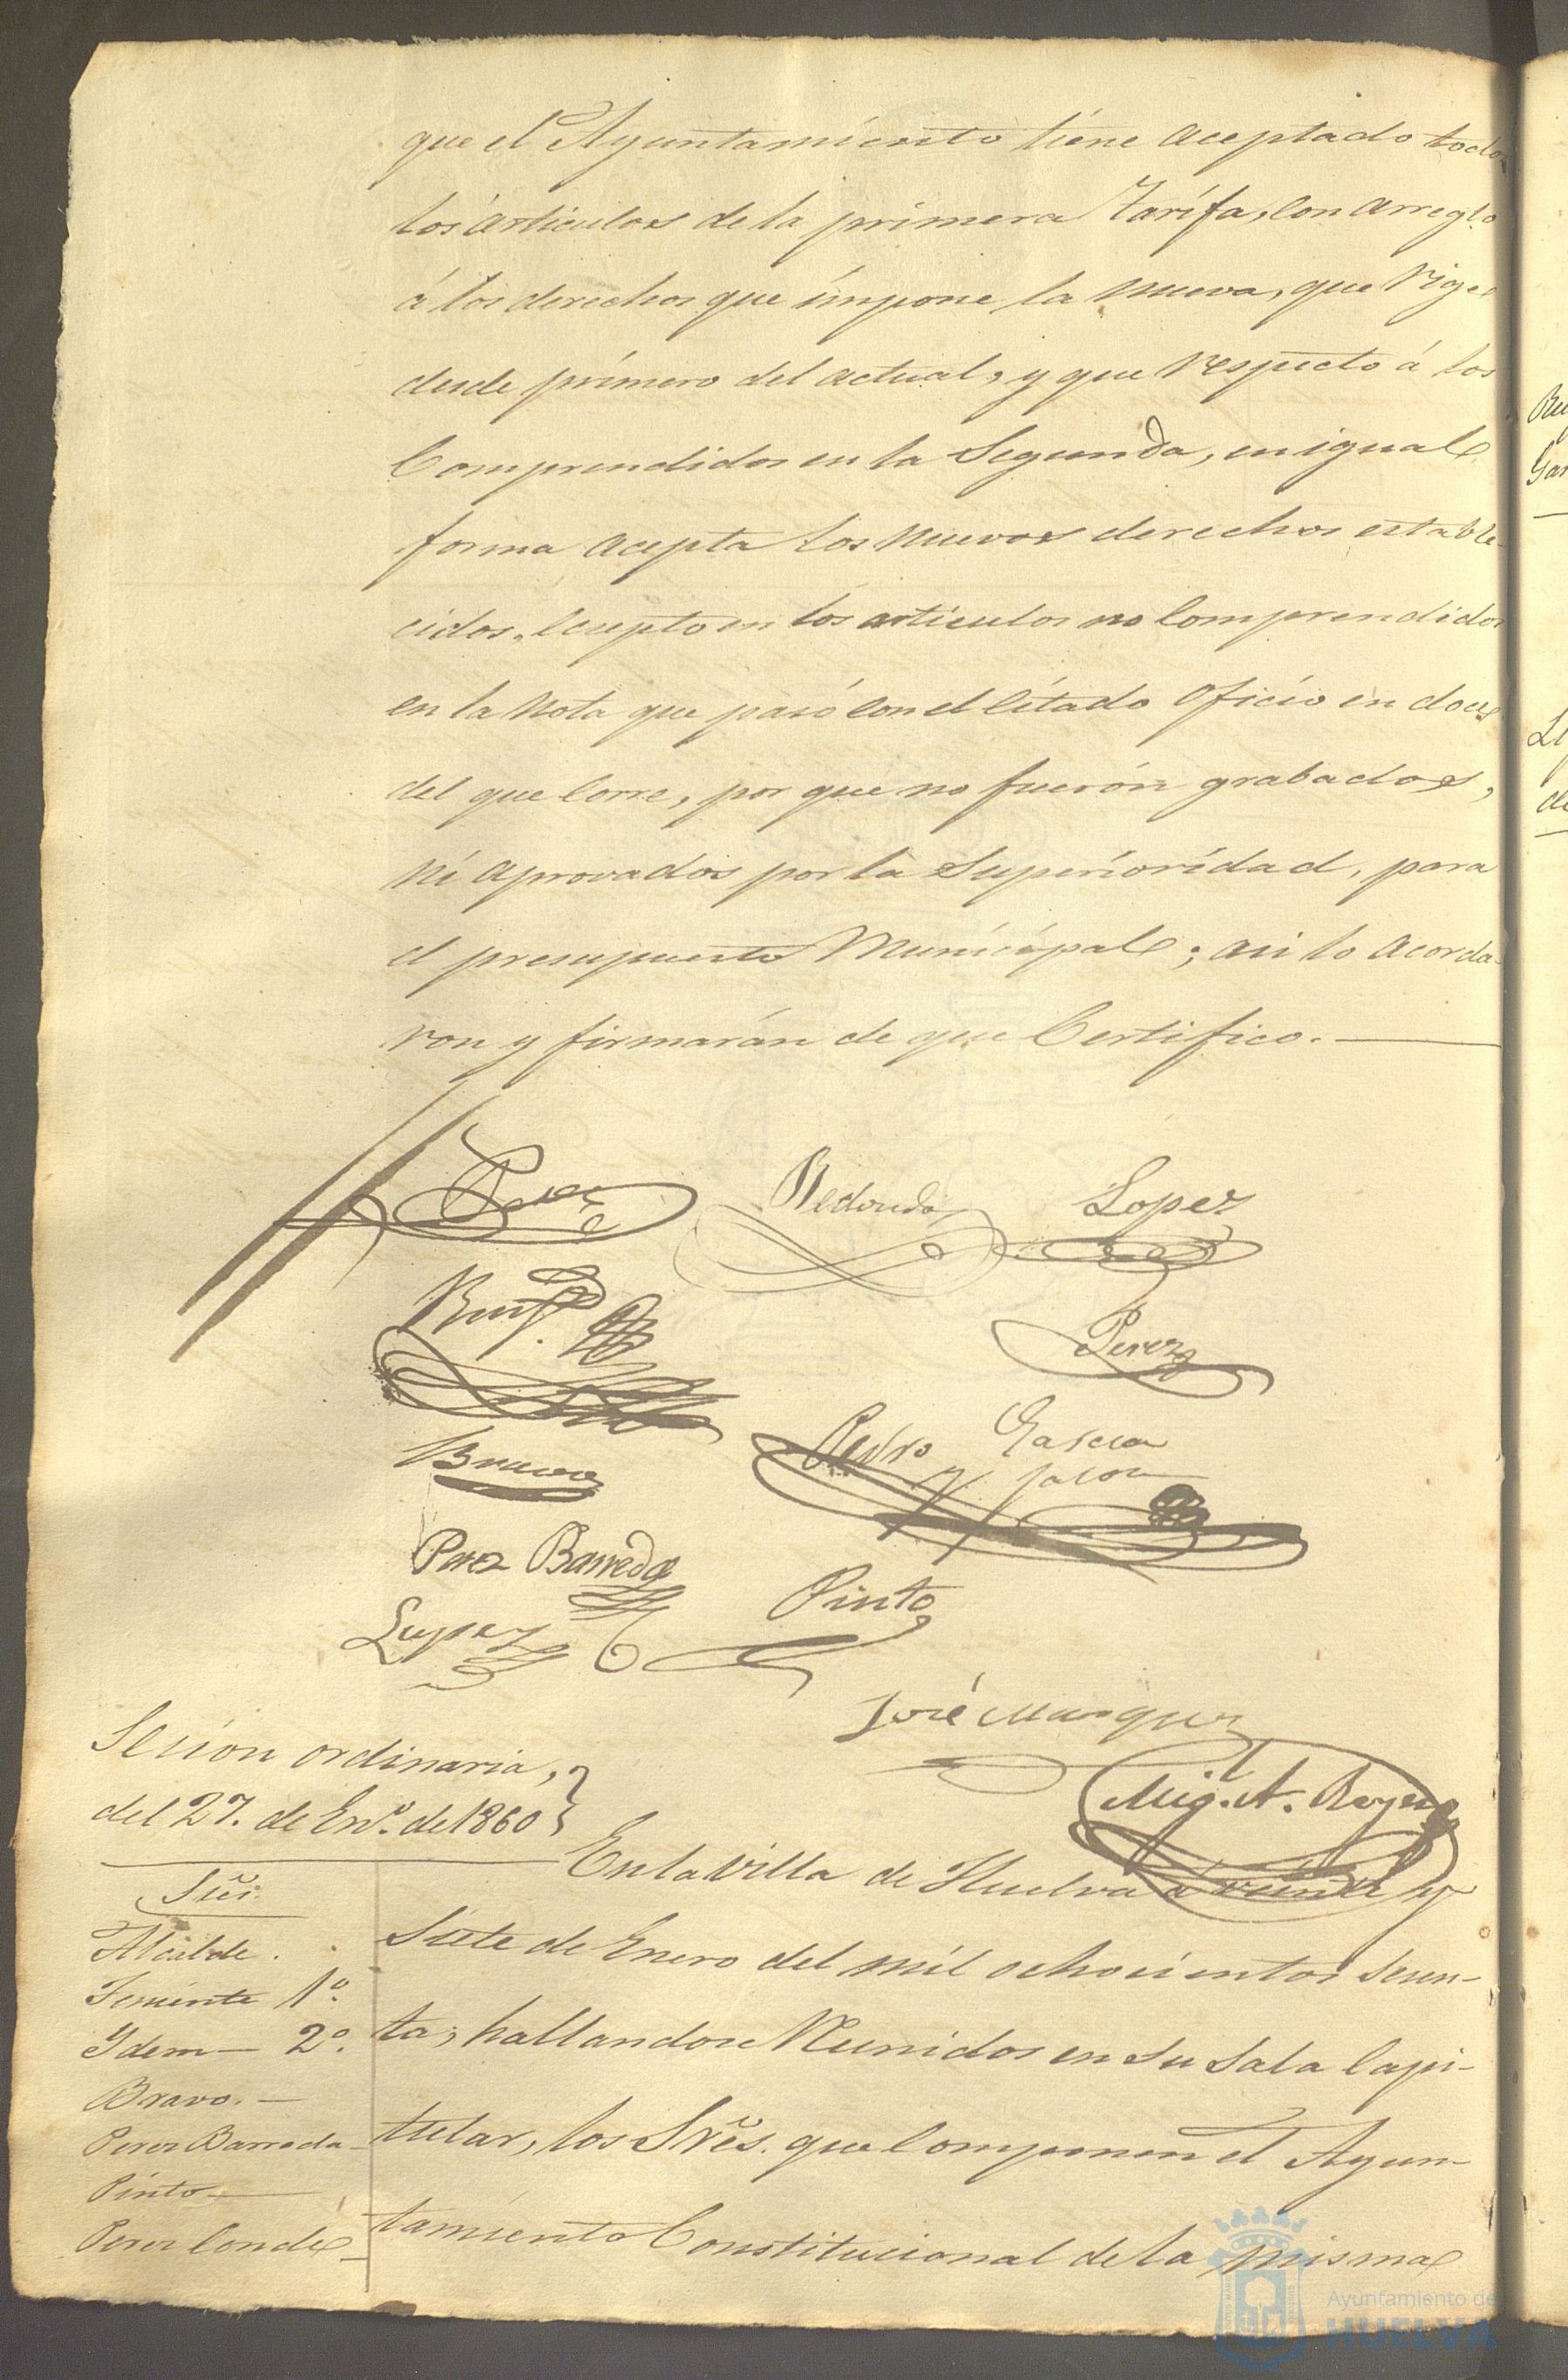 que el Ayuntamiento tiene aceptado todos
los articulos de la primera Tarifa, con arreglo
á los derechos que impone la nueva, que rige
desde primero del actual, y que respecto á los
Comprendidos en la Segunda, en igual
forma acepta los nuevos derechos estable-
cidos, escepto en los articulos no Comprendidos
en la nota que pasó con el citado oficio en doce
del que Corre, por que no fuerón grabados,
ni aprovados por la Superioridad, para
el presupuesto Municipal; asi lo acorda-
ron y firmarán de que Certifico.
Redondo Lopez
Ruiz
Perez
Bravo
Pedro Garcia
y Jalon
Perez Barreda
Pinto
Lopez
José Marquez
Mig. A.
Sesion ordinaria,
del 27. de En.º de 1860
En la Villa de Huelva á veinte y
Siete de Enero del mil ochocientos Sesen-
ta, hallandose Reunidos en su Sala Capi-
tular, los Sres. que Componen el Ayun-
tamiento Constitucional de la misma
Sres.
Alcalde.
Teniente 1º.
Ydem — 2º.
Bravo. —
Perez Barreda
Pinto
Perez Conde
Ayuntamiento de
HUELVA